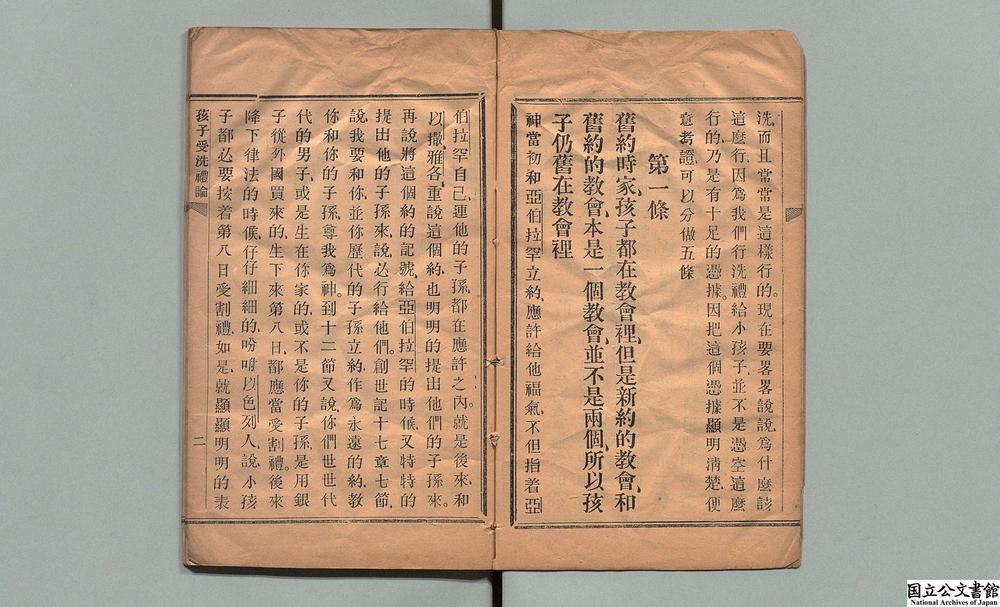 洗而且常常是這樣行的、現在要畧畧說說、爲什麼該
這麼行、因爲我們行洗禮給小孩子、並不是憑空這麼
行的、乃是有十足的憑據。因把這個憑據顯明淸楚、便
意考證、可以分做五條
第一條
舊約時家、孩子都在教會裡、但是新約的教會、和
舊約的教會、本是一個教會、並不是兩個、所以孩
子仍舊在教會裡
神當初和亞伯拉罕立約、應許給他福氣、不但指着亞
伯拉罕自己、連他的子孫都在應許之內。就是後來、和
以撒雅各、重說這個約、也明明的提出他們的子孫來。
再說將這個約的記號、給亞伯拉罕的時候、又特特的
提出他的子孫來說、必行給他們。創世記十七章七節、
說我要和你、並你歷代的子孫立約、作爲永遠的約、教
你和你的子孫、尊我爲神。到十二節又說、你們世世代
代的男子、或是生在你家的、或不是你的子孫、是用銀
子從外國買來的、生下來第八日、都應當受割禮。後來
降下律法的時候、仔仔細細的、吩咐以色列人、說、小孩
子都必要按着第八日受割禮、如是、就顯顯明明的表
孩子受洗禮論
二
国立公文書館
National Archives of Japan